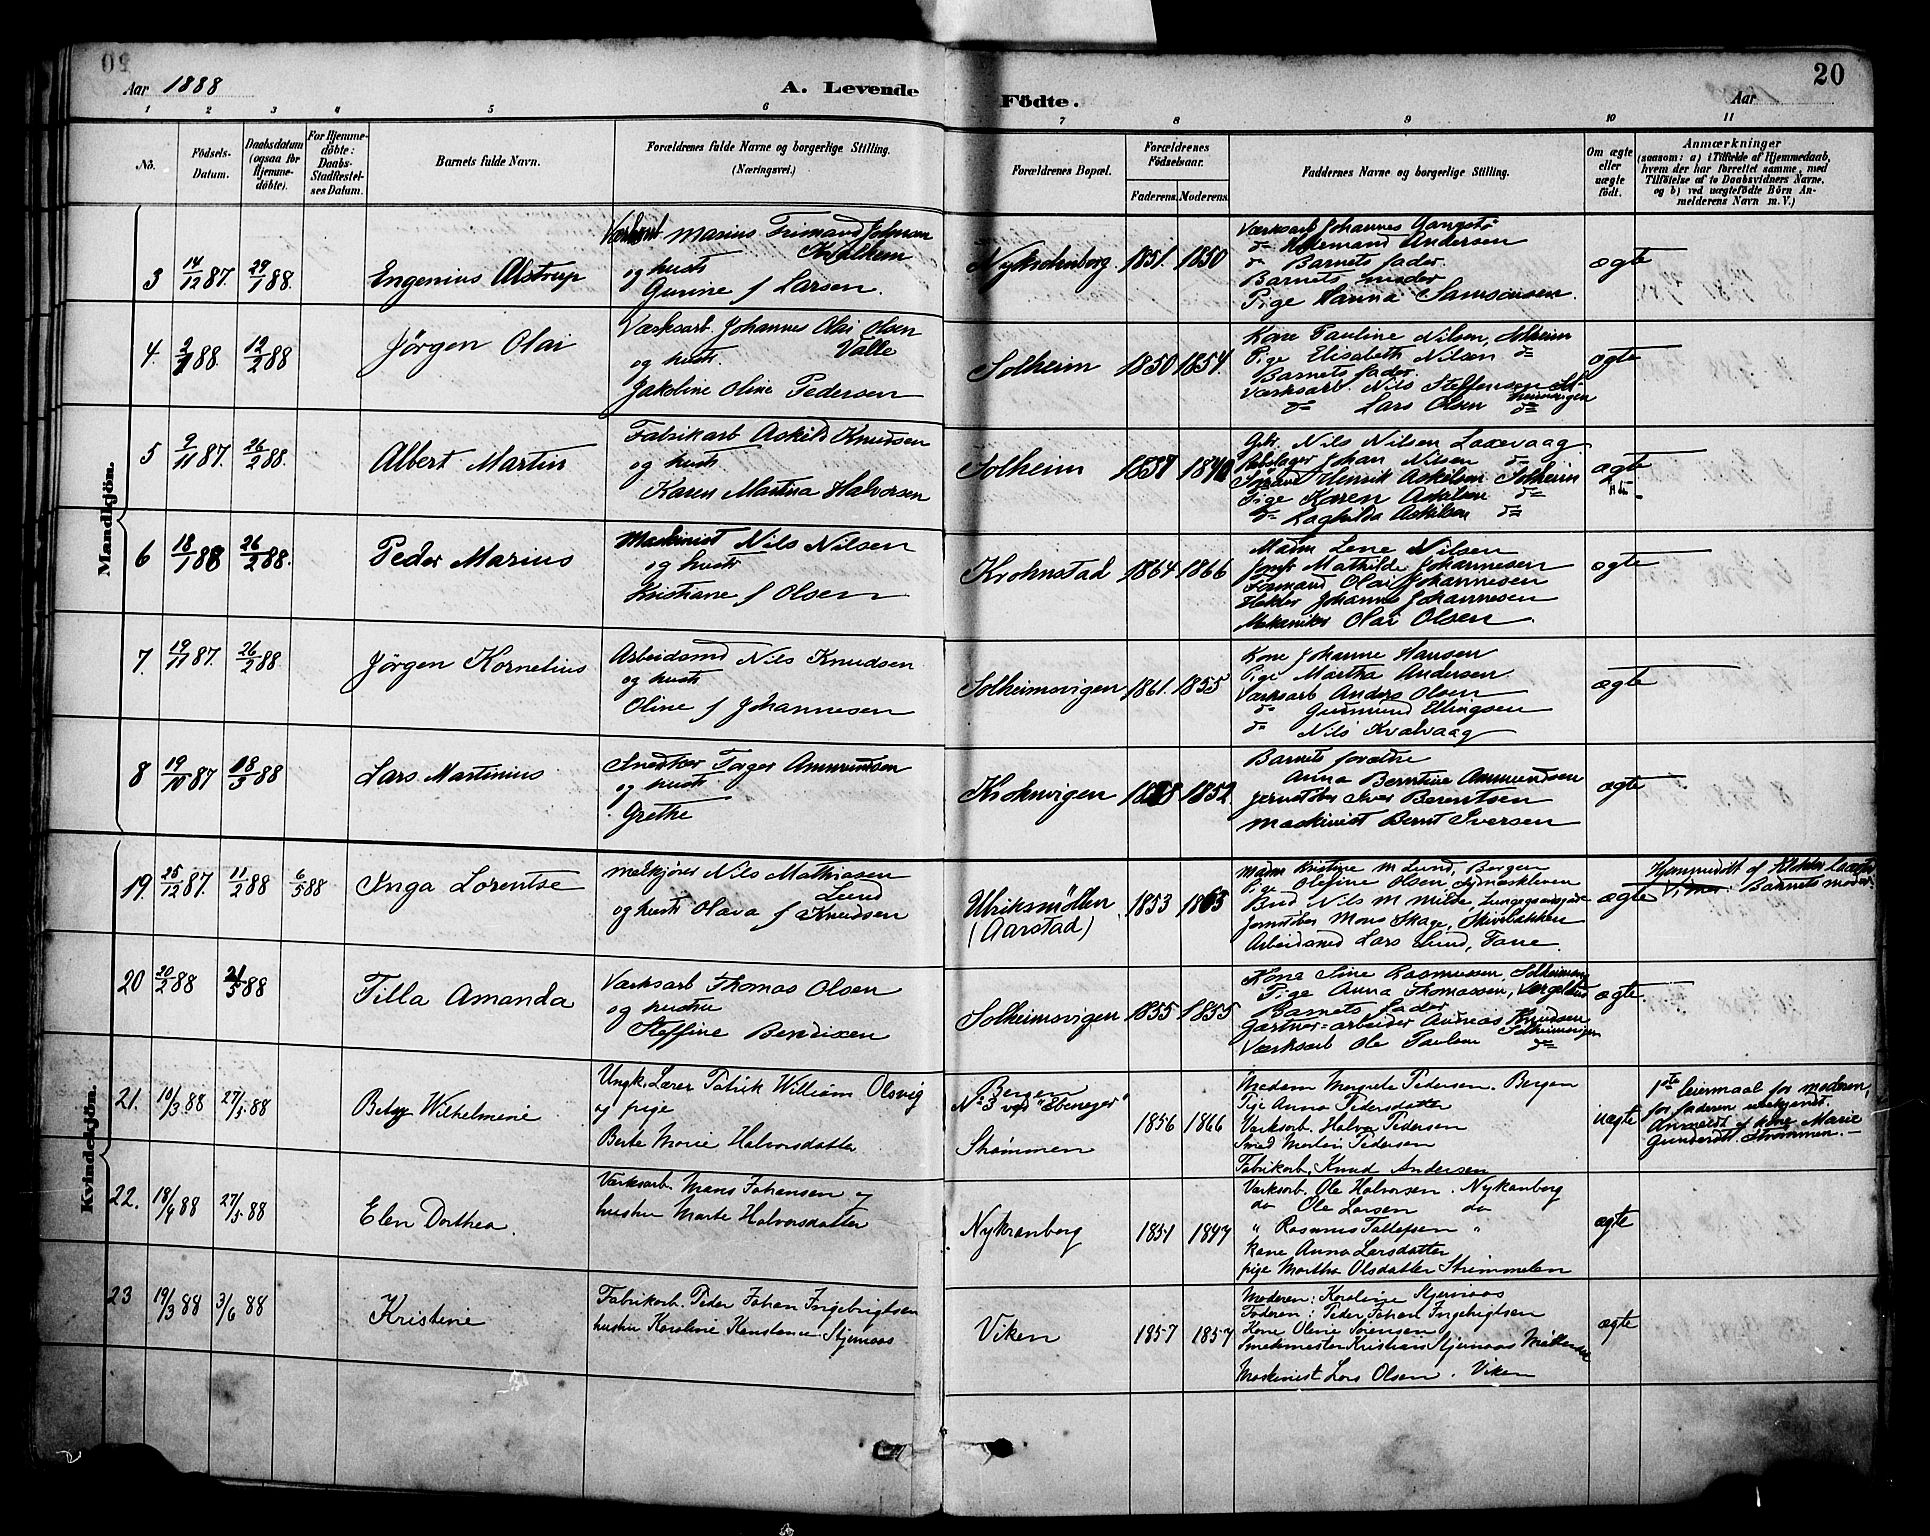 Aar 1888
A. Levende
Födte.
Aar
20
1 2 3 4 5 6 7 8 9 10 11
No.
Födsels-
Datum.
Daabsdatum
(ogsaa for
Hjemme-
döbte).
For Hjemme-
döbte:
Daabs-
Stadfæstel-
ses Datum.
Barnets fulde Navn.
Forældrenes fulde Navne og borgerlige Stilling.
(Næringsvei.)
Forældrenes Bopæl.
Forældrenes
Födselsaar.
Faderens. Moderens.
Faddernes Navne og borgerlige Stilling.
Om ægte
eller
uægte
födt.
Anmærkninger
(saasom: a) i Tilfælde af Hjemmedaab,
hvem der har forrettet samme, med
Tilföielse af to Daabsvidners Navne,
og b) ved uægtefödte Börn An-
melderens Navn m. V.)
Mandkjön.
3 14/12 87. 29/1 88. Engenius Alstrup
Marius Johnsen
Kvalheim
og hustr
Gurine f Larsen.
1851. 1850
Værksarb Johannes
do Andersen
do Barnets fader.
Barnets moder
Pige Hanna Samsonsen.
ægte
4. 2/1 88. 12/2 88 Jörgen Olai
Værksarb. Johannes Olai Olsen
Valle
og hustr.
Jakoline Oline Pedersen
Solheim 1850 1854.
Kone Pauline Nilsen, Solheim
Pige Elisabeth Nilsen do
Barnets fader.
Værksarb Nils Steffensen
do Lars Olsen do
ægte
5 9/11 87. 26/2 88. Albert Martin
Fabrikarb Askild Knudsen
og hustr
Karen Martina Halvorsen
Solheim
Nils Nilsen Laxevaag
Johan Nilsen do
Henrik Askilsen Solheim
Pige Karen Askilsen do
do Raghilda Askilsen do
ægte
6 18/1 88 26/2 88. Peder Marius
Maskinist Nils Nilsen
og hustr
Kristiane f Olsen
Krohnstad 1864 1866
Madm Lene Nilsen
Jomf Mathilde Johannesen
Formand Olai Johannesen
Johannes Johannesen
Mekaniker Olai Olsen.
ægte
7. 19/11 87. 26/2 88 Jörgen Kornelius
Arbeidsmd Nils Knudsen
og hustr
Oline f Johannesen
Solheimsvigen 1861. 1855
Kone Johanne Hansen
Pige Martha Andersen
Værksarb Anders Olsen
do Gudmund Ellingsen
do Nils Kvalvaag
ægte
8 19/10 87 18/3 88 Lars Martinius
Snedker Torger Ammundsen
og hustr
Grethe
Krohnvigen 1852
Barnets forældre
Anna Berntine Ammundsen
Jernstöber Iver Berentsen
Maskinist Bernt Iversen
ægte
Kvindekjön.
19. 25/12 87. 11/2 88 6/5 88 Inga Lorentse
Nils Mathiasen
Lund
og hustr Olava f Knudsen
Ulriksmöllen
(Aarstad)
1853 1865
Madm Kristine M Lund, Bergen
Pige Olefine Olsen,
Bud Nils M Milde,
Jernstöber Mons Skage,
Arbeidsmd Lars Lund, Fane.
ægte
Hjemmedöbt af
Barnets moder.
20 20/2 88 21/5 88 Tilla Amanda
Værksarb Thomas Olsen
og hustru
Steffine Bendixen
Solheimsvigen 1855 1855
Kone Sine Rasmussen,
Pige Anna Thomassen,
Barnets fader
Gartner-arbeider Andreas Knudsen
Solheimsvigen
Værksarb Ole Paulsen do
ægte.
21. 10/3 88 27/5 88 Betzy Wilhelmine
Ungk. Lærer Patrik William Olsvig
og pige
Berte Marie Halvorsdatter
Bergen
No 3 ved "Ebenezer"
Strömmen
1856 1866
Madam Margrete Pedersen. Bergen
Pige Anna Pedersdatter
Værksarb. Halvor Pedersen
Smed Martin Pedersen
Fabrikarb. Knud Andersen
uægte
1ste leiermaal for moderen,
for faderen ubekjendt.
Anmeldt af kone Marie
Gundersdt Strömmen.
22. 18/4 88 27/5 88 Elen Dorthea
Værksarb. Mons Johansen og
hustru Marte Halvorsdatter
Nykronborg 1851 1847
Værksarb. Ole Halvorsen. Nykronborg
do Ole Larsen do
" Rasmus Tollefsen "
Kone Anna Larsdatter
pige Martha Olsdatter Strimmelen
ægte
23 19/3 88 3/6 88 Kristine
Fabrikarb. Peder Johan Ingebrigtsen
hustru Karoline Konstance Stjernaas
Viken 1857 1857
Moderen: Karoline Stjernaas
Faderen: Peder Johan Ingebrigtsen
Kone Oline Sörensen
Smedmester Kristian Stjernaas
Maskinist Lars Olsen. Viken
ægte